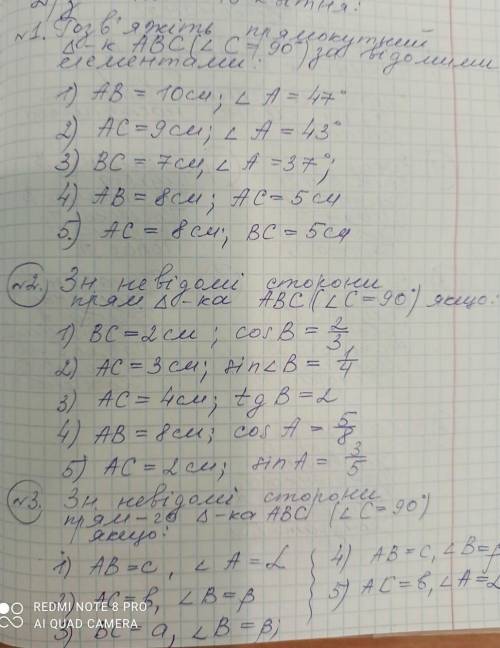 №1. Розв'яжіть прямокутний
Δ-к ABC (∠C=90°) за відомими
елементами:
1) AB = 10см; ∠A = 47°
2) AC = 9см; ∠A = 43°
3) BC = 7см, ∠A = 37°;
4) AB = 8см; AC = 5см
5) AC = 8см; BC = 5см
№2. Зн невідомі сторони
прям. Δ-ка ABC (∠C=90°) якщо:
1) BC = 2см; cosB = 2/3
2) AC = 3см; sin∠B = 1/4
3) AC = 4см; tg B = 2
4) AB = 8см; cos A = 5/8
5) AC = 2см; sin A = 3/5
№3. Зн невідомі сторони
прям-го Δ-ка ABC (∠C=90°)
якщо:
1) AB = c, ∠A = α
2) AC = b, ∠B = β
3) BC = a, ∠B = β;
4) AB = c, ∠B = β
5) AC = b, ∠A = α
REDMI NOTE 8 PRO
AI QUAD CAMERA